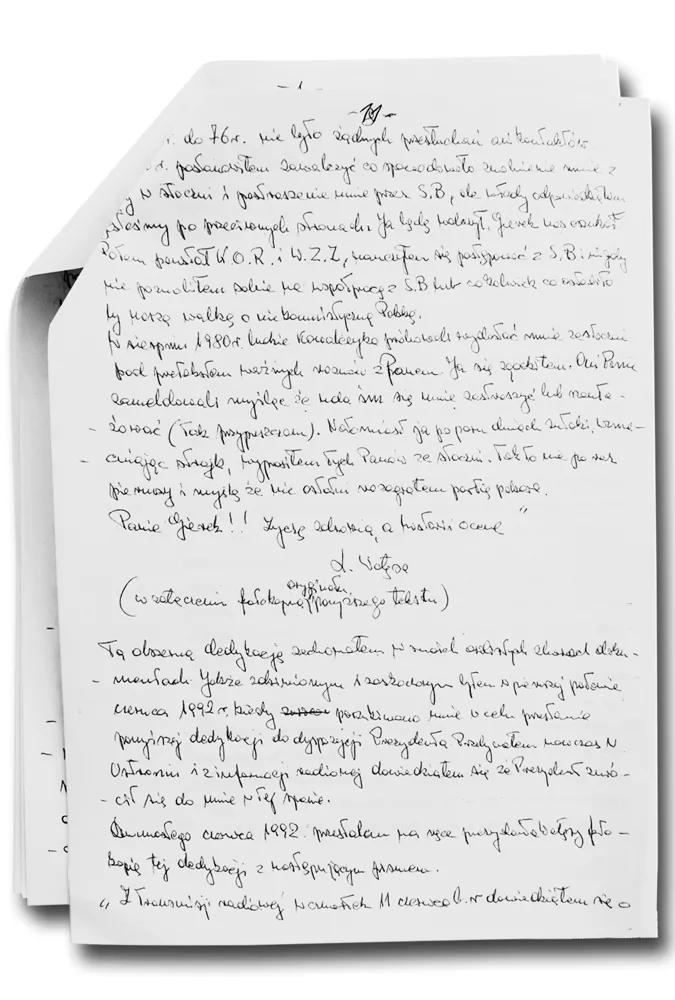 - 19 -
r. do 76 r. nie było żadnych przesłuchań ani kontaktów
r. postanowiłem zawalczyć co spowodowało zwolnienie mnie z
y w stoczni i postraszenie mnie przez S.B, ale wtedy odpowiedziałem
jesteśmy po przeciwnych stronach. Ja będę walczył. Gierek nas oszukał.
Potem powstał K.O.R. i W.Z.Z, nauczyłem się postępować z S.B i nigdy
nie pozwoliłem sobie na współpracę z S.B lub cokolwiek co osłabiło
by naszą walkę o niekomunistyczną Polskę.
W sierpniu 1980 r. ludzie Kowalczyka próbowali wydostać mnie ze stoczni
pod pretekstem ważnych rozmów z Panem. Ja się zgodziłem. Oni Panu
zameldowali myśląc że uda im się mnie zastraszyć lub szanta-
- żować (tak przypuszczam). Natomiast ja po paru dniach zwłoki, wzma-
- cniając strajk, wyprosiłem tych Panów ze stoczni. Tak to na po raz
pierwszy i myślę że nie ostatni rozegrałem partię pokera.
Panie Gierek!! Życzę zdrowia, a historii ocenę"
L. Wałęsa
(w załączeniu fotokopia oryginału powyższego tekstu)
Tą obszerną dedykację zachowałem w swoich osobistych zbiorach doku-
- mentach. Jakże zdziwionym i zaskoczonym byłem w pierwszej połowie
czerwca 1992 r, kiedy poszukiwano mnie w celu przesłania
powyższej dedykacji do dyspozycji Prezydenta. Przebywałem wówczas w
Ustroniu i z informacji radiowej dowiedziałem się że Prezydent zwró-
- cił się do mnie w tej sprawie.
Dwunastego czerwca 1992. przesłałem na ręce prezydenta Wałęsy foto-
kopię tej dedykacji z następującym pismem.
„Z transmisji radiowej w czwartek 11 czerwca b.r dowiedziałem się o